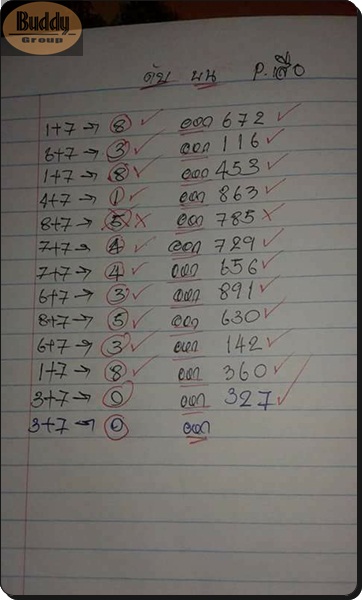 Buddy
Group
ดับ บน P.เสือ
1+7 → 8 ✓ ออก 672 ✓
6+7 → 3 ✓ ออก 116 ✓
1+7 → 8 ✓ ออก 453 ✓
4+7 → 1 ✓ ออก 863 ✓
8+7 → 5 × ออก 785 ×
7+7 → 4 ✓ ออก 729 ✓
7+7 → 4 ✓ ออก 656 ✓
6+7 → 3 ✓ ออก 891 ✓
8+7 → 5 ✓ ออก 630 ✓
6+7 → 3 ✓ ออก 142 ✓
1+7 → 8 ✓ ออก 360 ✓
3+7 → 0 ออก 327 ✓
3+7 → 0 ออก